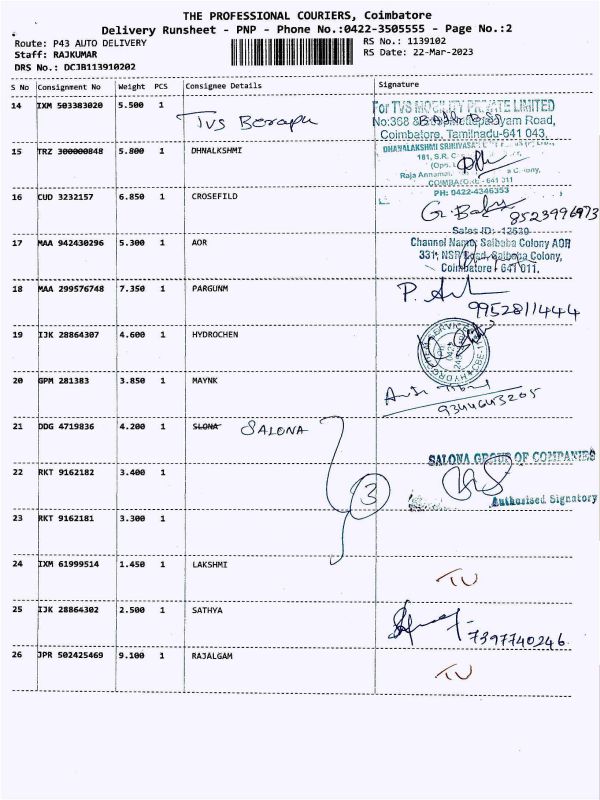 THE PROFESSIONAL COURIERS, Coimbatore
Delivery Runsheet - PNP - Phone No.:0422-3505555 - Page No.:2
Route: P43 AUTO DELIVERY
Staff: RAJKUMAR
DRS No.: DCJB113910202
RS No.: 1139102
RS Date: 22-Mar-2023
S No Consignment No Weight PCS Consignee Details Signature
14 IXM 503383020 5.500 1
For TVS MOBILITY PRIVATE LIMITED
Coimbatore, Tamilnadu-641 043.
15 TRZ 300000848 5.800 1 DHNALKSHMI
PH: 0422-4346353
16 CUD 3232157 6.850 1 CROSEFILD G. Baby
8523996973
Sales ID: -12630
17 MAA 942430296 5.300 1 AOR Channel Name: Saibaba Colony AOR
331, NSR Road, Saibaba Colony,
Coimbatore - 641 011.
18 MAA 299576748 7.350 1 PARGUNM
9952811444
19 IJK 28864307 4.600 1 HYDROCHEN
20 GPM 281383 3.850 1 MAYNK
9344643205
21 DDG 4719836 4.200 1 SLONA SALONA
SALONA GROUP OF COMPANIES
22 RKT 9162182 3.400 1
3
Authorised Signatory
23 RKT 9162181 3.300 1
24 IXM 61999514 1.450 1 LAKSHMI
TU
25 IJK 28864302 2.500 1 SATHYA
7397740246
26 JPR 502425469 9.100 1 RAJALGAM
TU